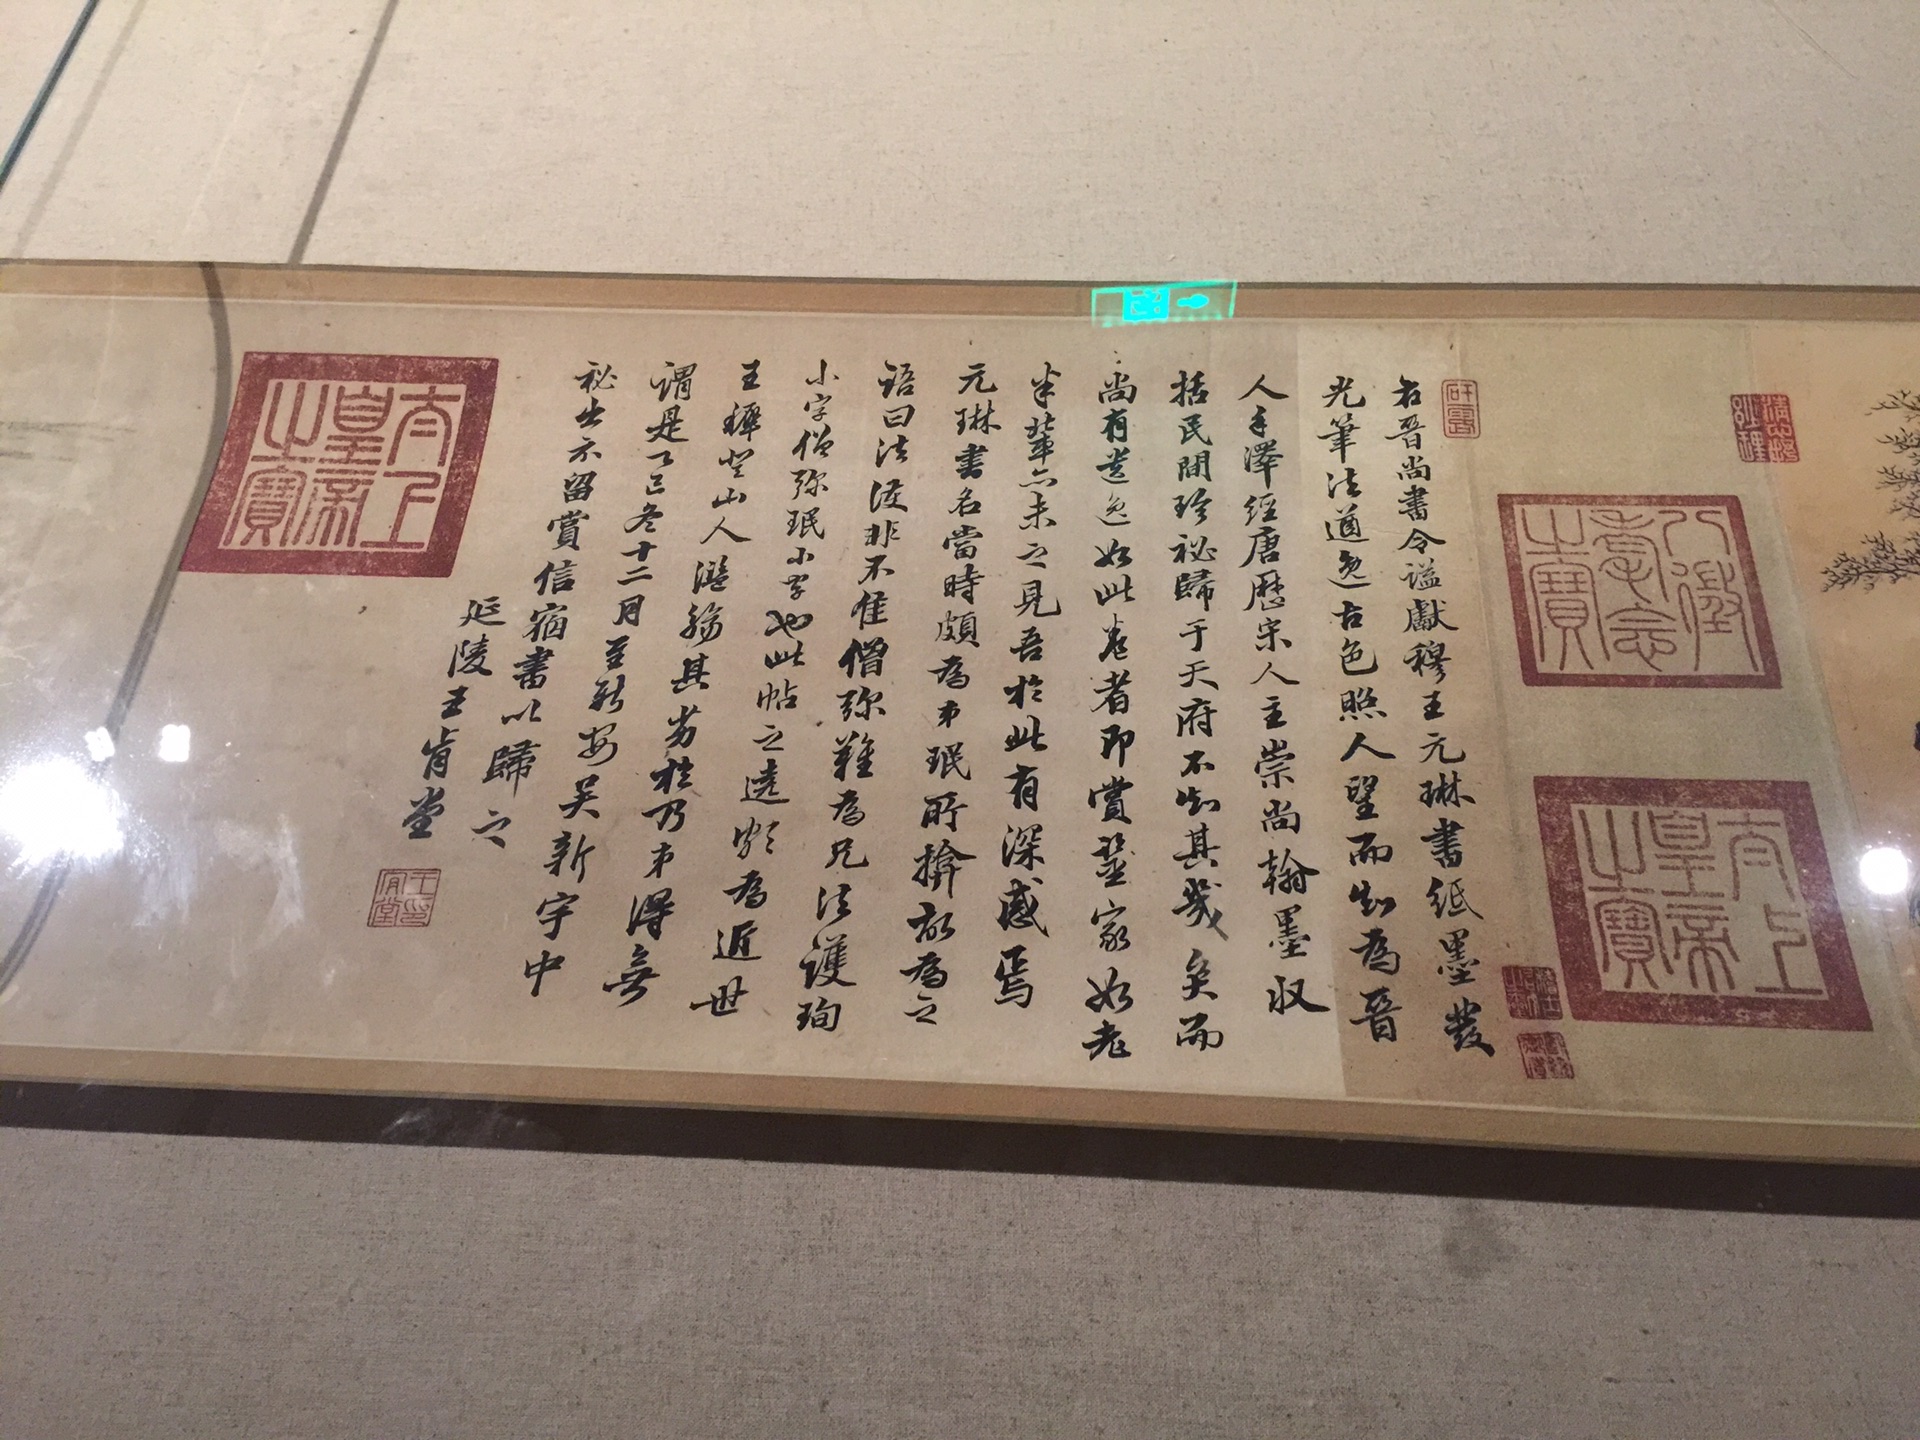 八徵耄念之寶
太上皇帝之寶
右晉尚書令謚獻穆王元琳書紙墨發
光筆法遒逸古色照人望而知為晉
人手澤經唐歷宋人主崇尚翰墨收
括民間珍秘歸于天府不知其幾矣而
尚有遺逸如此卷者即賞鑒家如老
米輩亦未之見吾於此有深感焉
元琳書名當時頗為弟珉所揜故為之
語曰法護非不佳僧弥難為兄法護珣
小字僧弥珉小字也此帖之為近世
王穉登山人濫觴其劣於乃弟得無
謂是巳冬十二月至新安吳新宇中
秘出示留賞信宿書以歸之
延陵王肯堂
王印肯堂
太上皇帝之寶